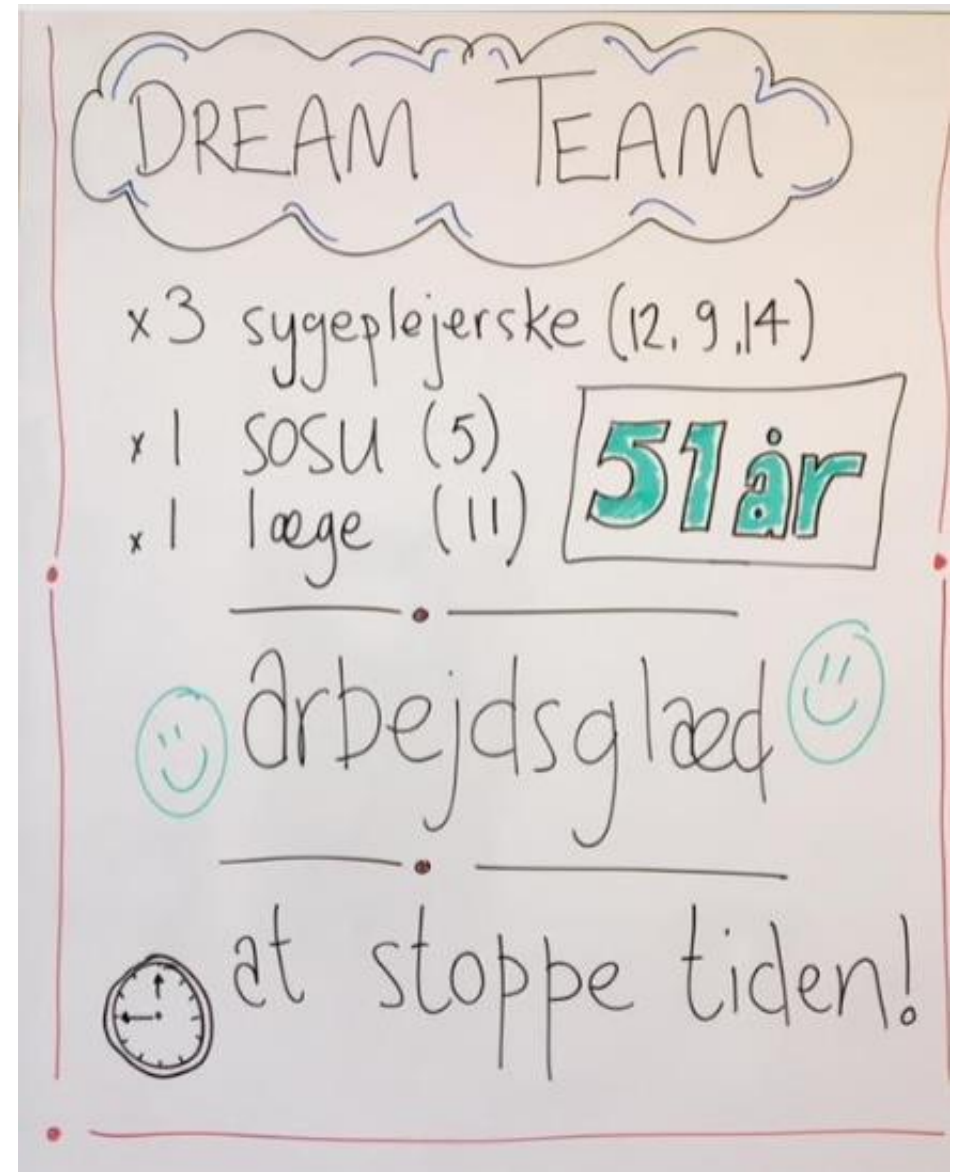 DREAM TEAM
x 3 sygeplejerske (12, 9, 14)
x 1 SOSU (5)
51 år
x 1 læge (11)
arbejdsglæd
at stoppe tiden!